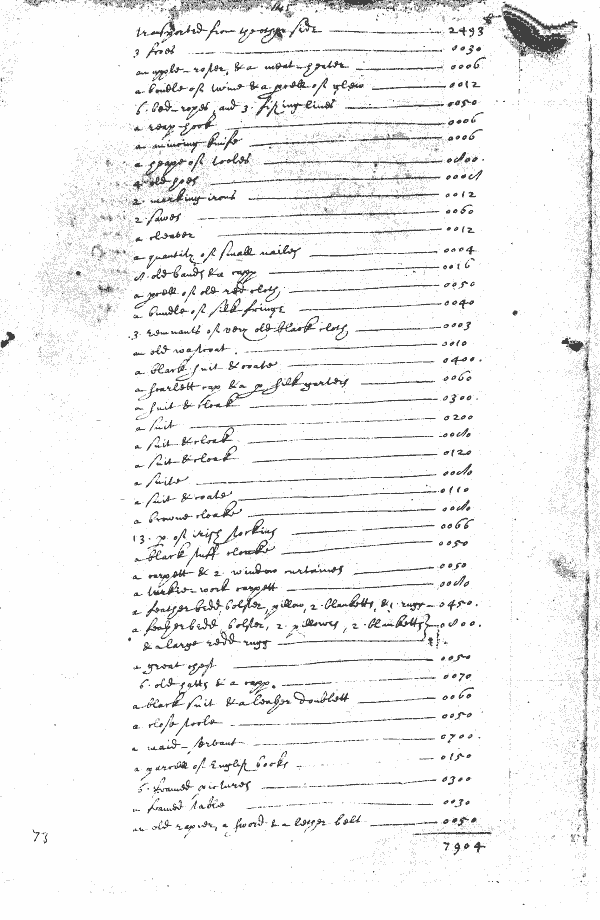 transported from the other side 2493
3 froes 0030
an apple-roster, & a meat-heater 0006
a bundle of twine & a prcll of glew 0012
6. bed-ropes, and 3. fishing lines 0050
a reap hook 0006
an mincing knife 0006
a heape of tooles 0800.
4 old hoes 0008
2. marking irons 0012
2. sawes 0060
a cleaver 0012
a quantity of small nailes 0004
8 old bands & a capp 0016
a prcell of old red cloth 0050
a bundle of silk fringe 0040
3. remnants of very old black cloth 0003
an old wascoat 0010
a black suit & coate 0400.
a scarlett cap & a p. silk garters 0060
a suit & cloak 0300.
a suit 0200
a suit & cloak 0080
a suit & cloak 0120
a suite 0080
a suit & coate 0110
a browne cloake 0080
13. p. of irish stockins 0066
a black stuff cloake 0050
a carpett & 2. window curtaines 0050
a turkie-work carpett 0080
a feather bedd, bolster, pillow, 2. blanketts, & 1. rugg 0450.
a feather bedd bolster, 2. pillowes, 2. blanketts 0800.
& a large redd rugg
a great chest 0050
6. old hatts & a capp. 0070
a black suit & a leather doublett 0060
a close stoole 0050
a maid-servant 0700.
a parcell of English books 0150
6. framed pictures 0300
a framed table 0030
an old rapier, a sword & a leather belt 0050
73
7904